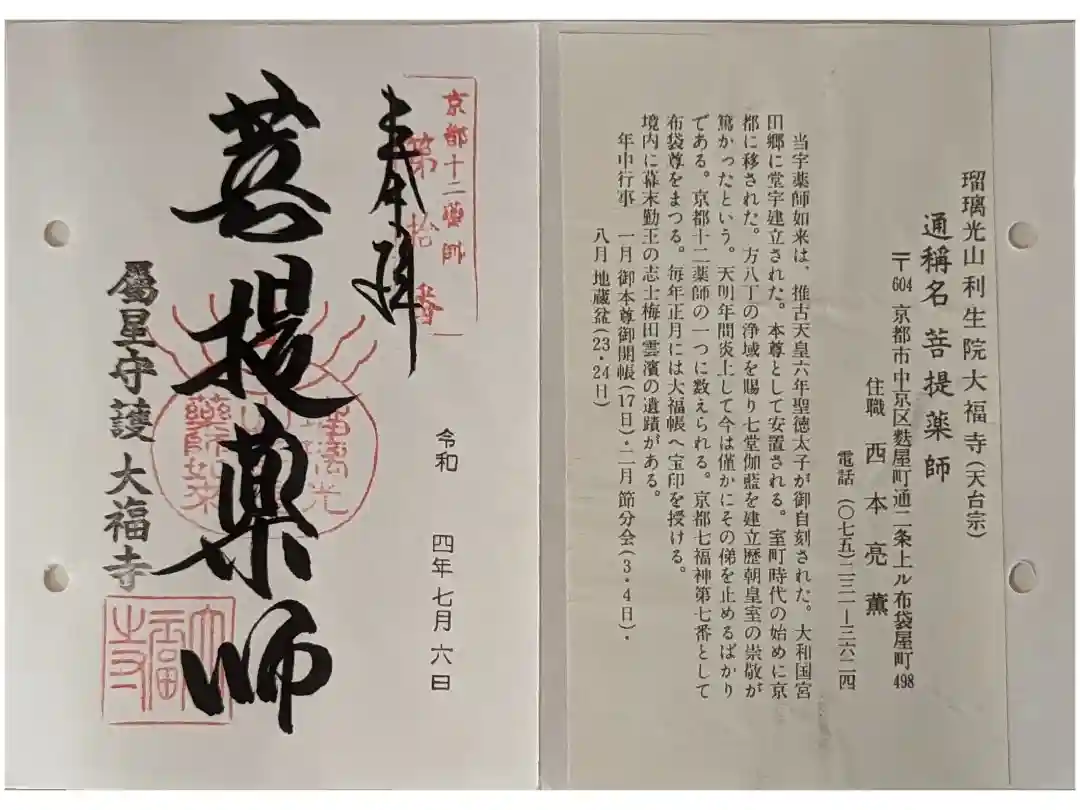 瑠璃光山利生院大福寺(天台宗)
通稱名 菩提薬師
〒604 京都市中京区麩屋町通二条上ル布袋屋町498
住職 西本亮薫
電話 (〇七五)二三一―三六二四
当宇薬師如来は、推古天皇六年聖徳太子が御自刻された。大和国宮
田郷に堂宇建立された。本尊として安置される。室町時代の始めに京
都に移された。方八丁の浄域を賜り七堂伽藍を建立歴朝皇室の崇敬が
篤かったという。天明年間炎上して今は僅かにその俤を止めるばかり
である。京都十二薬師の一つに数えられる。京都七福神第七番として
布袋尊をまつる。毎年正月には大福帳へ宝印を授ける。
境内に幕末勤王の志士梅田雲濱の遺蹟がある。
年中行事 一月 御本尊御開帳(17日)・二月 節分会(3・4日)・
八月 地蔵盆(23・24日)
京都十二藥師
第拾番
奉拝
令和 四年七月六日
菩提薬師
瑠璃光
山
藥師如来
屬星守護 大福寺
大福寺